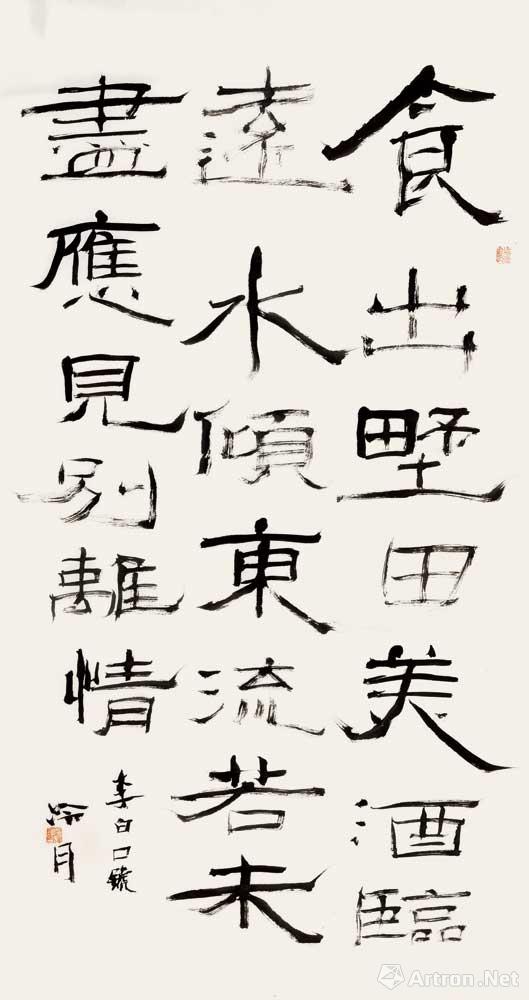 食出野田美酒臨
遠水傾東流若未
盡應見別離情
李白口號
冷月
Artron.Net